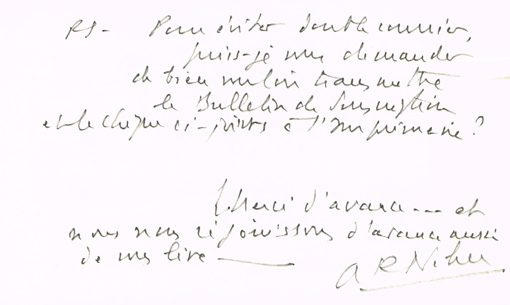 PS - Pour éviter double courrier,
puis-je vous demander
de bien vouloir transmettre
le Bulletin de Souscription
et le chèque ci-joints à l'Imprimerie ?
Merci d'avance --- et
nous nous réjouissons d'avance aussi
de vous lire